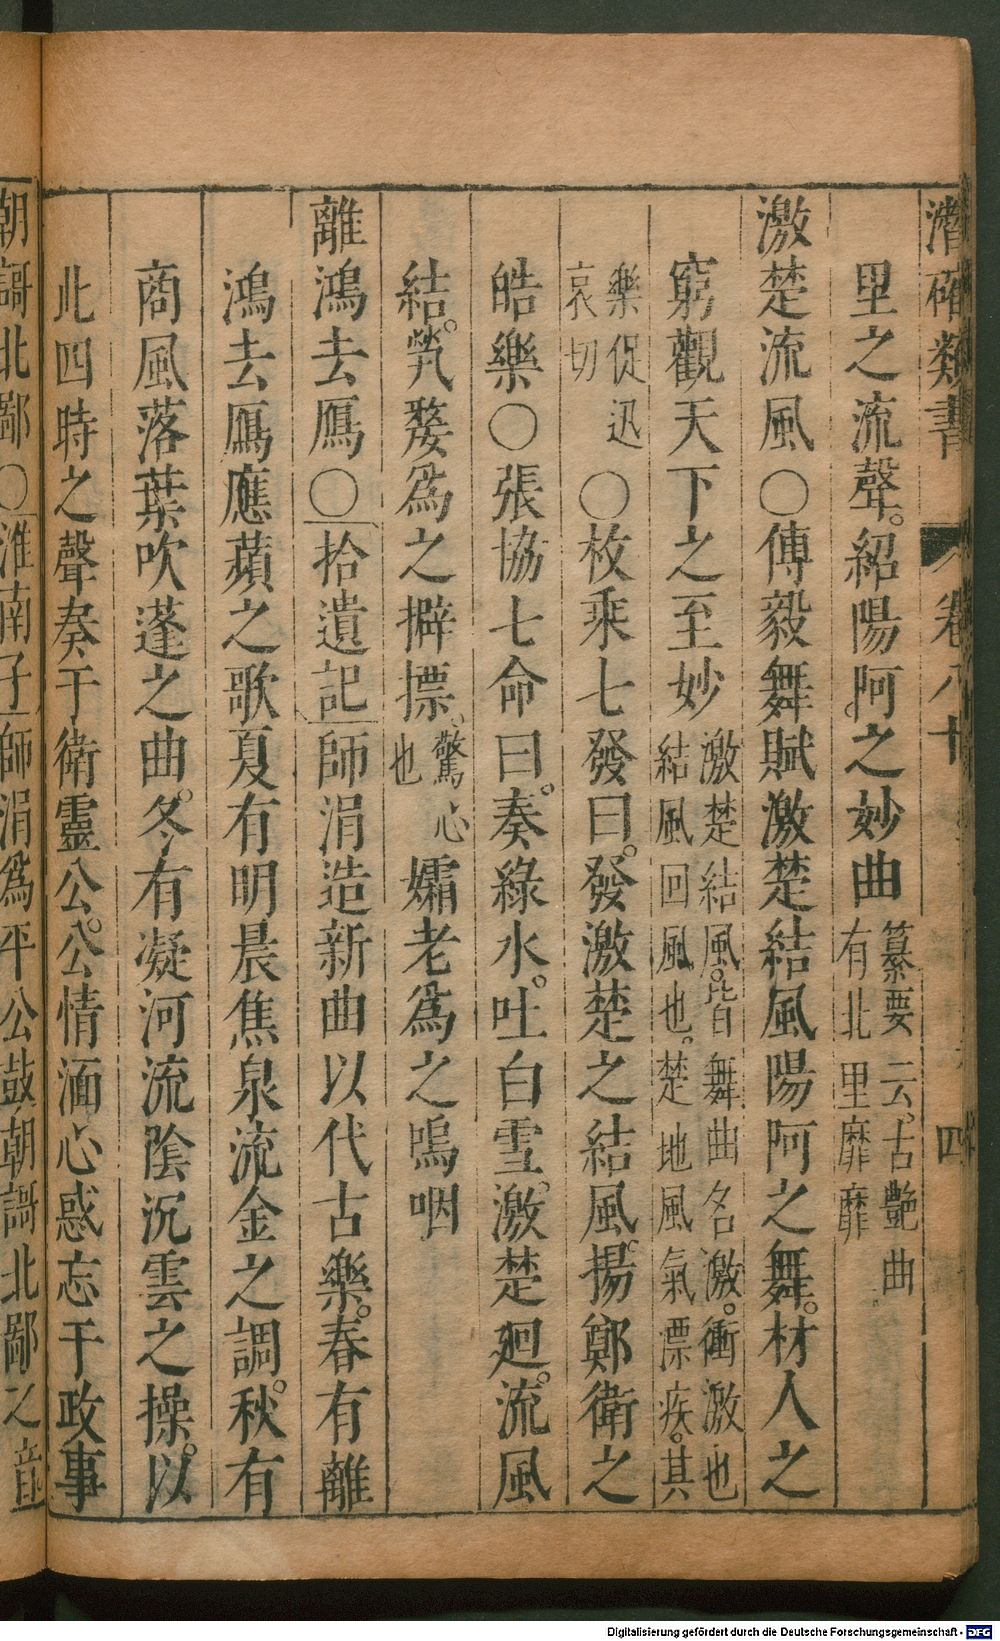 潛確類書 卷八十 四
里之流聲。紹陽阿之妙曲 纂要云。古艷曲
有北里靡靡
激楚流風〇傅毅舞賦激楚結風陽阿之舞。材人之
窮觀天下之至妙 激楚結風。皆舞曲名。激。衝激也
結風回風也。楚地風氣漂疾。其
樂促迅
哀切 〇枚乘七發曰。發激楚之結風。揚鄭衛之
皓樂〇張協七命曰。奏綠水。吐白雪。激楚廻。流風
結。煢嫠爲之擗摽。 驚心
也 孀老爲之嗚咽
離鴻去鴈〇拾遺記師涓造新曲以代古樂。春有離
鴻去鴈應蘋之歌夏有明晨焦泉流金之調。秋有
商風落葉吹蓬之曲。冬有凝河流陰沉雲之操。以
此四時之聲奏于衛靈公。公情湎心惑忘于政事
朝謌北鄙〇淮南子師涓爲平公鼓朝謌北鄙之音
Digitalisierung gefördert durch die Deutsche Forschungsgemeinschaft - DFG